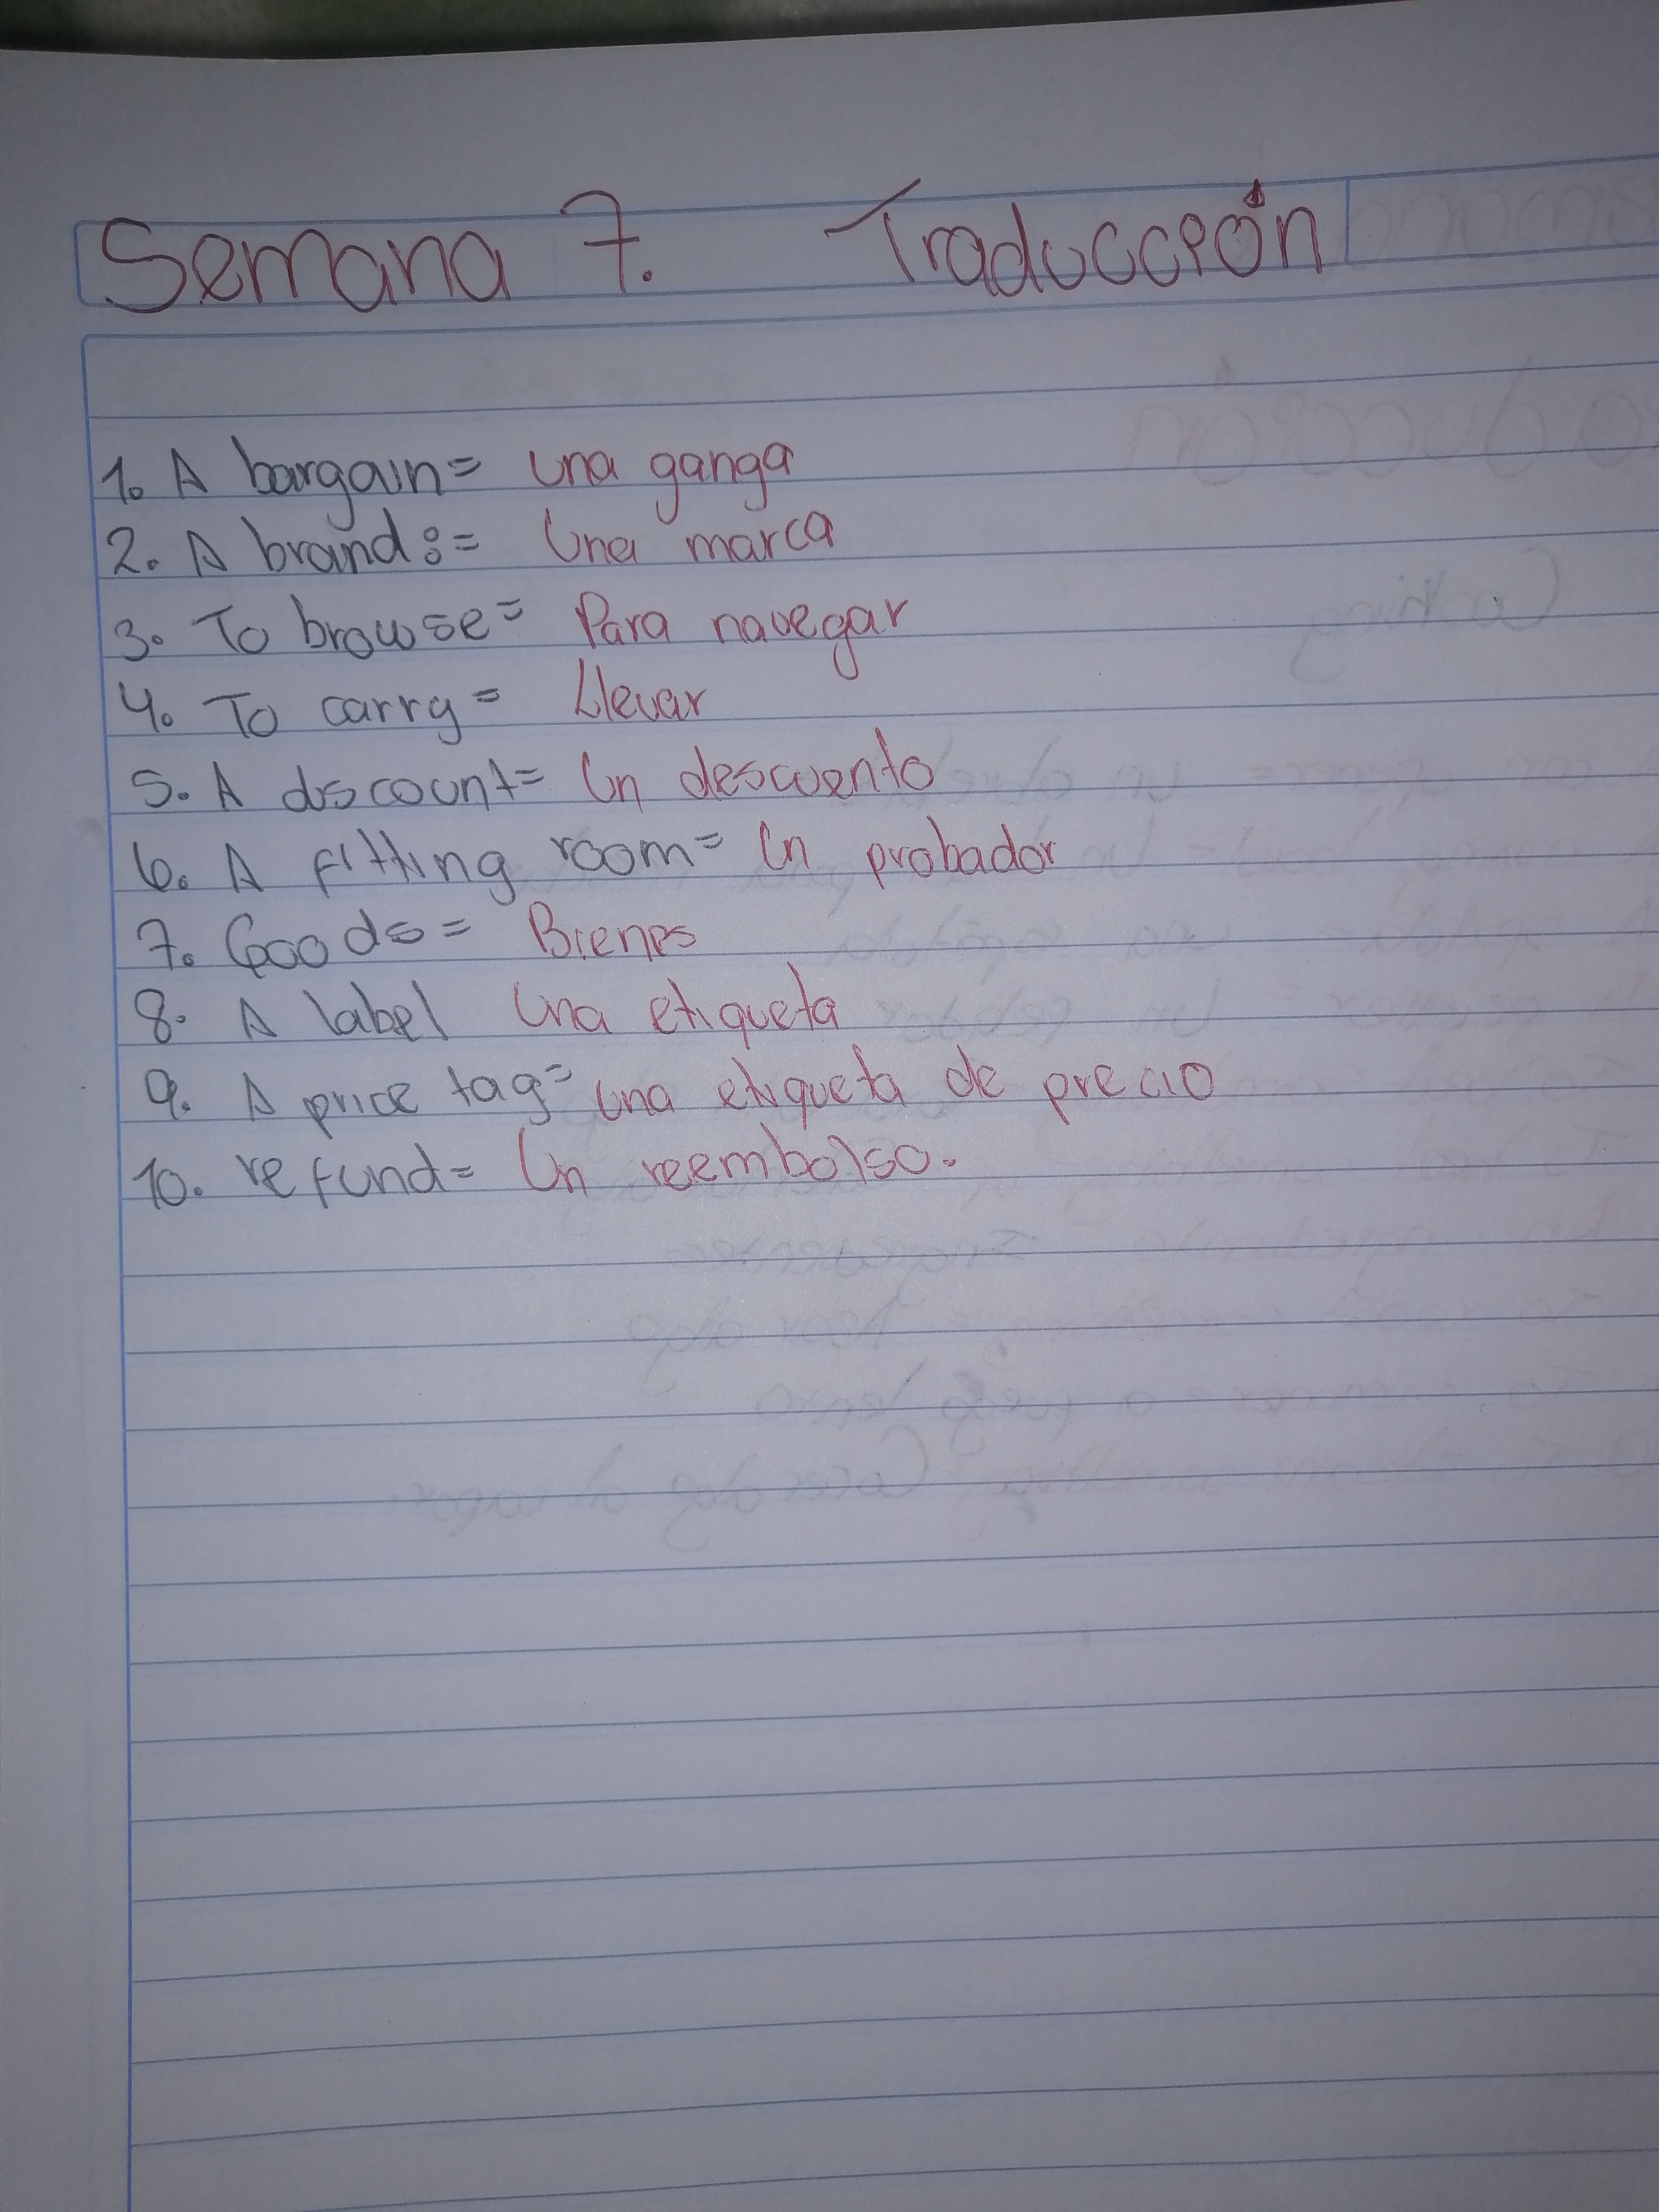 Semana 7. Traducción
1. A bargain= una ganga
2. A brand:= Una marca
3. To browse= Para navegar
4. To carry= Llevar
5. A discount= Un descuento
6. A fitting room= Un probador
7. Goods= Bienes
8. A label Una etiqueta
9. A price tag= una etiqueta de precio
10. refund= Un reembolso.